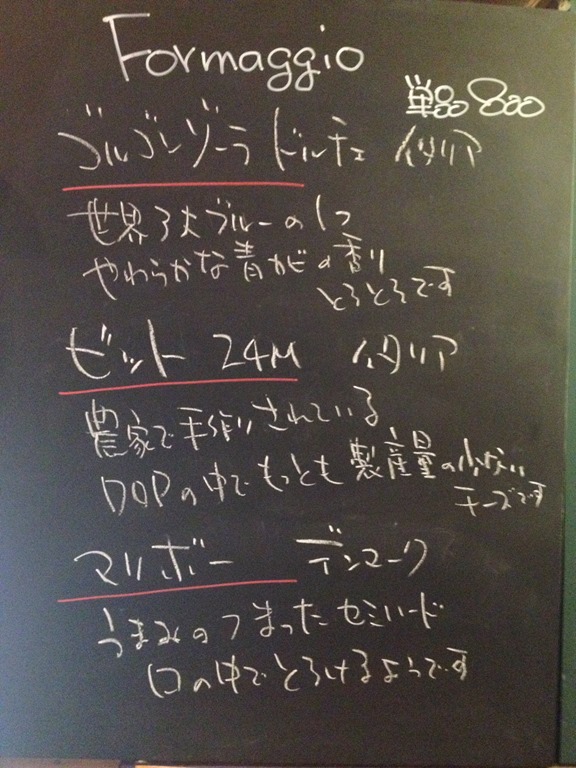 Formaggio
単品 800
ゴルゴンゾーラ ドルチェ イタリア
世界3大ブルーの1つ
やわらかな青カビの香り
とろとろです
ビット 24M イタリア
農家で手作りされている
DOPの中でもっとも製産量の少ない
チーズです
マリボー デンマーク
うまみのつまったセミハード
口の中でとろけるようです